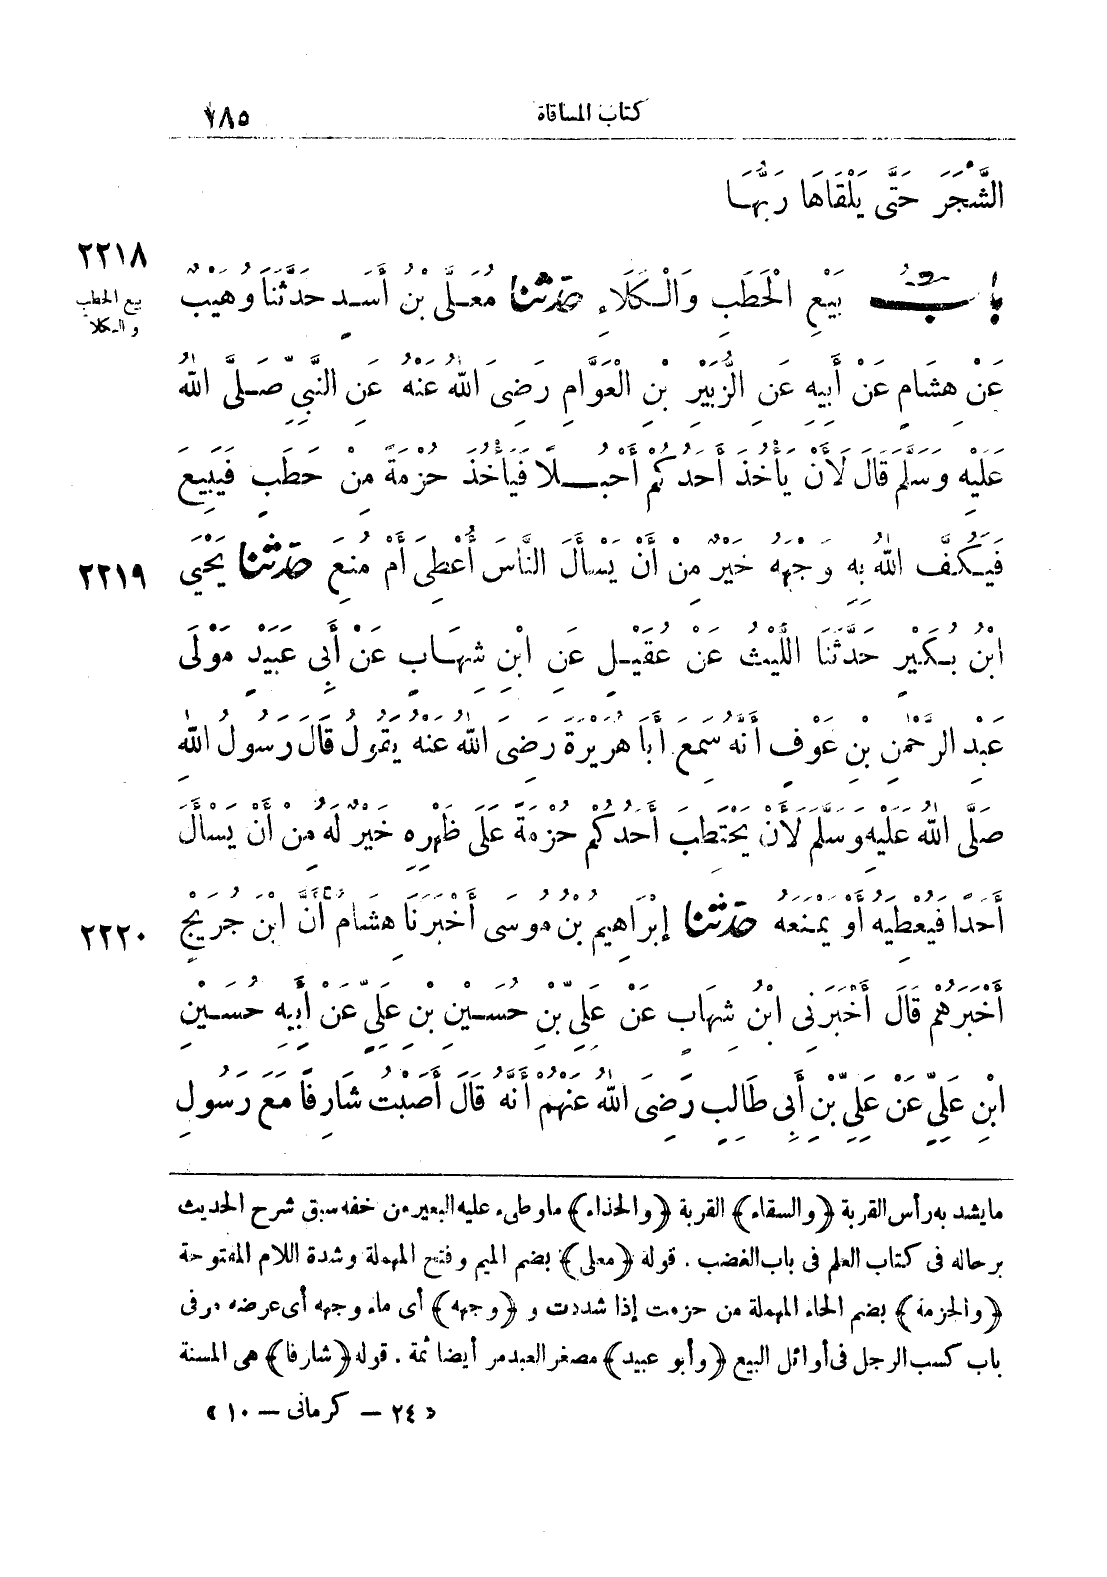 كتاب المساقاة ١٨٥
الشَّجَرَ حَتَّى يَلْقَاهَا رَبُّهَا
٢٢١٨
بيع الحطب
والكلأ
بَابُ بَيْعِ الْحَطَبِ وَالْكَلَإِ حَدَّثَنَا مُعَلَّى بْنُ أَسَدٍ حَدَّثَنَا وُهَيْبٌ
عَنْ هِشَامٍ عَنْ أَبِيهِ عَنِ الزُّبَيْرِ بْنِ الْعَوَّامِ رَضِىَ اللهُ عَنْهُ عَنِ النَّبِيِّ صَلَّى اللهُ
عَلَيْهِ وَسَلَّمَ قَالَ لَأَنْ يَأْخُذَ أَحَدُكُمْ أَحْبُلًا فَيَأْخُذَ حُزْمَةً مِنْ حَطَبٍ فَيَبِيعَ
فَيَكُفَّ اللهُ بِهِ وَجْهَهُ خَيْرٌ مِنْ أَنْ يَسْأَلَ النَّاسَ أُعْطِىَ أَمْ مُنِعَ حَدَّثَنَا يَحْيَى
٢٢١٩
ابْنُ بُكَيْرٍ حَدَّثَنَا اللَّيْثُ عَنْ عُقَيْلٍ عَنِ ابْنِ شِهَابٍ عَنْ أَبِى عُبَيْدٍ مَوْلَى
عَبْدِ الرَّحْمٰنِ بْنِ عَوْفٍ أَنَّهُ سَمِعَ أَبَا هُرَيْرَةَ رَضِىَ اللهُ عَنْهُ يَقُولُ قَالَ رَسُولُ اللهِ
صَلَّى اللهُ عَلَيْهِ وَسَلَّمَ لَأَنْ يَحْتَطِبَ أَحَدُكُمْ حُزْمَةً عَلَى ظَهْرِهِ خَيْرٌ لَهُ مِنْ أَنْ يَسْأَلَ
أَحَدًا فَيُعْطِيَهُ أَوْ يَمْنَعَهُ حَدَّثَنَا إِبْرَاهِيمُ بْنُ مُوسَى أَخْبَرَنَا هِشَامٌ أَنَّ ابْنَ جُرَيْجٍ
٢٢٢٠
أَخْبَرَهُمْ قَالَ أَخْبَرَنِى ابْنُ شِهَابٍ عَنْ عَلِيِّ بْنِ حُسَيْنِ بْنِ عَلِيٍّ عَنْ أَبِيهِ حُسَيْنِ
ابْنِ عَلِيٍّ عَنْ عَلِيِّ بْنِ أَبِى طَالِبٍ رَضِىَ اللهُ عَنْهُمْ أَنَّهُ قَالَ أَصَبْتُ شَارِفًا مَعَ رَسُولِ
ما يشد به رأس القربة ﴿والسقاء﴾ القربة ﴿والحذاء﴾ ما وطىء عليه البعير من خفه سبق شرح الحديث
برجاله فى كتاب العلم فى باب الغضب . قوله ﴿معلى﴾ بضم الميم وفتح المهملة وشدة اللام المفتوحة
﴿والحزمة﴾ بضم الحاء المهملة من حزمت إذا شددت و ﴿وجهه﴾ أى ماء وجهه أى عرضه مر فى
باب كسب الرجل فى أوائل البيع ﴿وأبو عبيد﴾ مصغر العبد مر أيضا ثمة . قوله ﴿شارفا﴾ هى المسنة
« ٢٤ – كرمانى – ١٠ »